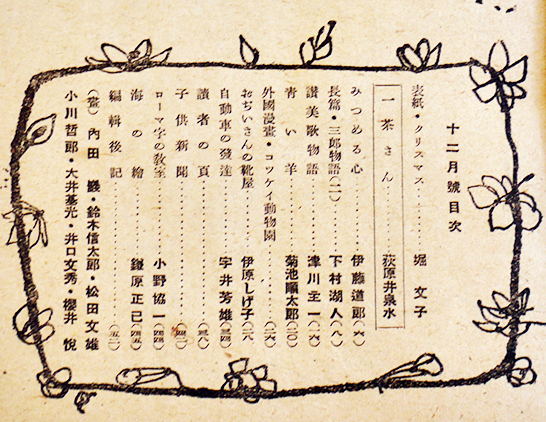 十二月號目次
表紙・クリスマス……………堀文子
一茶さん……………荻原井泉水
みつめる心……………伊藤道郎(六)
長篇・三郎物語(二)……………下村湖人(八)
讃美歌物語……………津川主一(一六)
青い羊……………菊池順太郎(二〇)
外國漫畫・コツケイ動物園……………(二六)
おぢいさんの靴屋……………伊原しげ子(二八)
自動車の發達……………宇井芳雄(三四)
讀者の頁……………(三八)
子供新聞……………(四二)
ローマ字の教室……………小野協一(四四)
海の繪……………鎌原正巳(四五)
編輯後記……………(五二)
(畫)內田巖・鈴木信太郎・松田文雄
小川哲郎・大井基光・井口文秀・櫻井悅